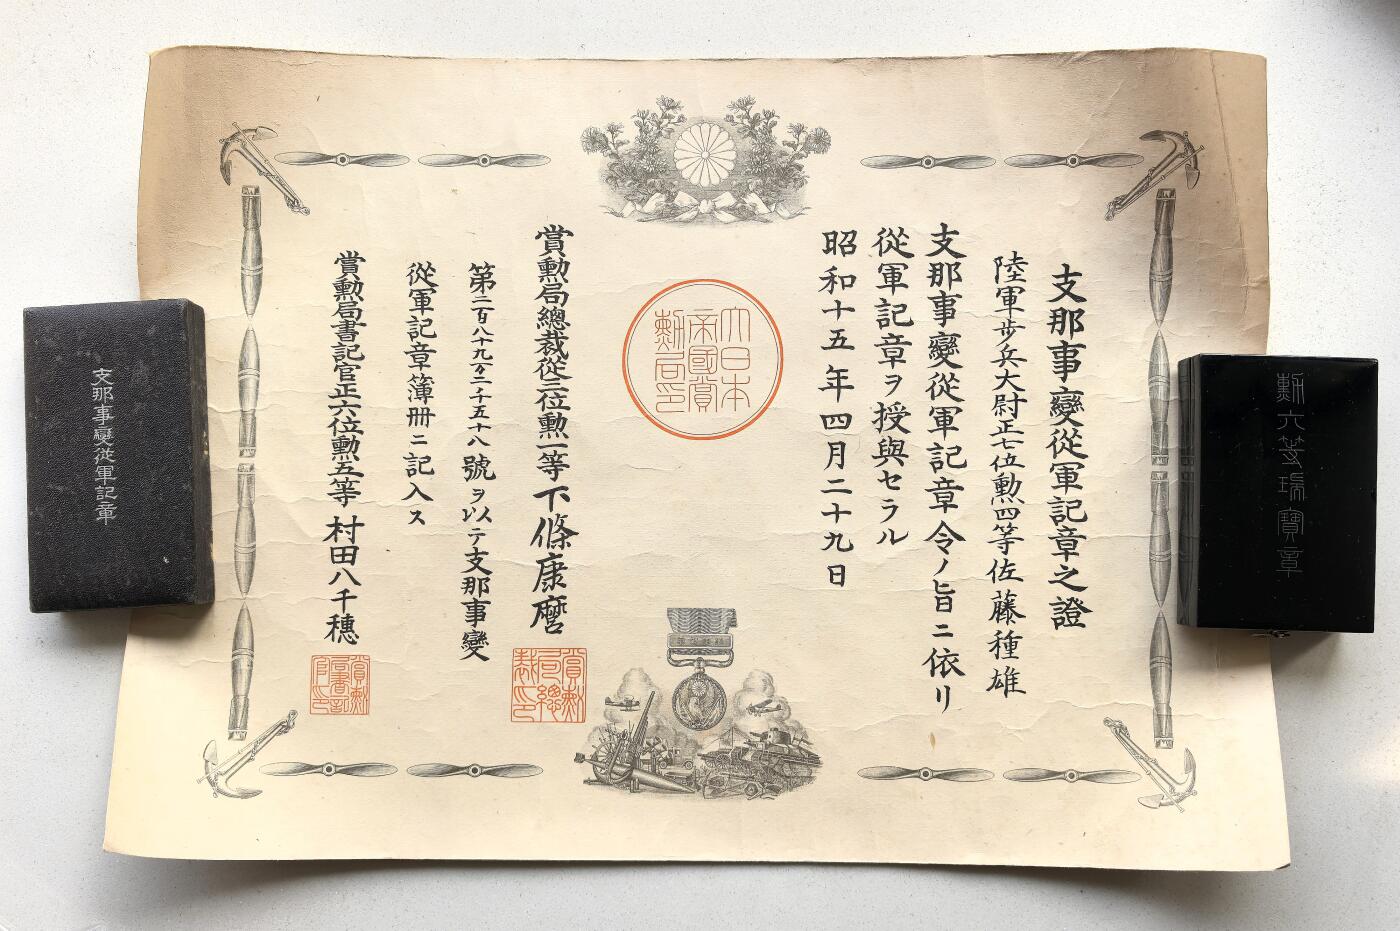 支那事變從軍記章之證
陸軍步兵大尉正七位勲四等佐藤種雄
支那事變從軍記章令ノ旨ニ依リ
從軍記章ヲ授與セラル
昭和十五年四月二十九日
大日本
帝國賞
勲局印
賞勲局總裁從三位勲一等下條康麿
賞勲
局總
裁印
第二百八十九万二千五十八號ヲ以テ支那事變
從軍記章簿冊ニ記入ス
賞勲局書記官正六位勲五等村田八千穗
賞勲
局書記
官印
支那事變從軍記章
勲六等瑞寶章